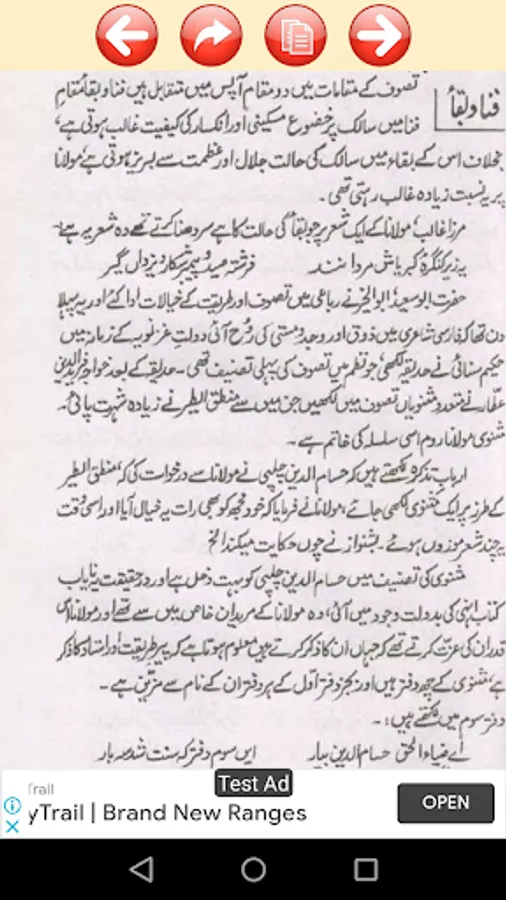 فنا و بقا
تصوف کے مقامات میں دو مقام آپس میں متقابل ہیں فنا و بقا مقامِ
فنا میں سالک پر خضوع مسکینی اور انکسار کی کیفیت غالب ہوتی ہے،
بخلاف اس کے بقاء میں سالک کی حالت جلال اور عظمت سے لبریز ہوتی ہے مولانا
پر یہ نسبت زیادہ غالب رہتی تھی۔
مرزا غالب مولانا کے ایک شعر پر جو بقا کی حالت کا ہے سر دھنا کرتے تھے وہ شعر یہ ہے:
بہ زیر کنگرۂ کبریاش مردانند فرشتہ صید و پیمبر شکار و یزداں گیر
حضرت ابو سعید ابو الخیر نے رباعی میں تصوف اور طریقت کے خیالات ادا کئے اور یہ پہلا
دن تھا کہ فارسی شاعری میں ذوق اور وجد و مستی کی روح آئی دولتِ غزنویہ کے زمانہ میں
حکیم سنائی نے حدیقہ لکھی جو نظم میں تصوف کی پہلی تصنیف تھی۔ حدیقہ کے بعد خواجہ فرید الدین
عطار نے متعدد مثنویاں تصوف میں لکھیں جن میں سے منطق الطیر نے زیادہ شہرت پائی۔
مثنوی مولانا روم اسی سلسلہ کی خاتم ہے۔
ارباب تذکرہ لکھتے ہیں کہ حسام الدین چلپی نے مولانا سے درخواست کی کہ منطق الطیر
کے طرز پر ایک مثنوی لکھی جائے، مولانا نے فرمایا کہ خود مجھ کو بھی رات یہ خیال آیا اور اسی وقت
یہ چند شعر موزوں ہوئے۔ بشنو از نے چوں حکایت میکند الخ
مثنوی کی تصنیف میں حسام الدین چلپی کو بہت دخل ہے اور در حقیقت یہ نایاب
کتاب انہی کی بدولت وجود میں آئی، وہ مولانا کے مریدان خاص میں سے تھے اور مولانا اس
قدر ان کی عزت کرتے تھے کہ جہاں ان کا ذکر کرتے ہیں معلوم ہوتا ہے کہ پیر طریقت اور استاد کا ذکر
ہے، مثنوی کے چھ دفتر ہیں اور بجز دفتر اول کے ہر دفتر ان کے نام سے مزین ہے۔
دفتر سوم میں لکھتے ہیں:۔
اے ضیاء الحق حسام الدین بیار ایں سوم دفتر کہ سنت شد سہ بار
Test Ad
Trail
yTrail | Brand New Ranges
OPEN